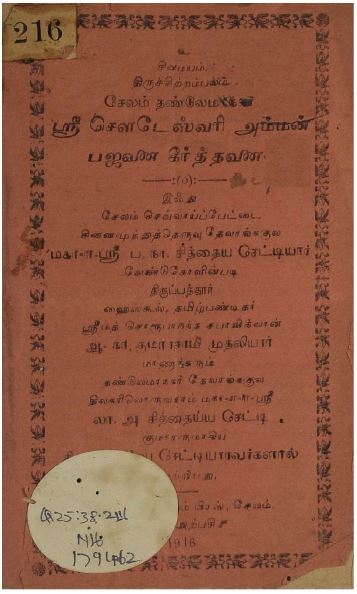 216
உ
சிவமயம்.
திருச்சிற்றம்பலம்
சேலம் தண்டுலமாகர்
ஸ்ரீ சௌடேஸ்வரி அம்மன்
பஜனை கீர்த்தனை.
—:(0):—
இஃது
சேலம் செவ்வாய்ப்பேட்டை
தேவாங்ககுல
மகா-ள-ஸ்ரீ ப. நா. சித்தைய செட்டியார்
வேண்டுகோளின்படி
திருப்பத்தூர்
ஹைஸ்கூல், தமிழ்பண்டிதர்
ஆ. கா. குமாரசாமி முதலியார்
மாணாக்கரும்
தேவாங்ககுல
மகா-ள-ஸ்ரீ
லா. அ சித்தைய்ய செட்டி
குமாரருமாகிய
செட்டியாரவர்களால்
பிரஸ், சேலம்.
1916
Q25:38.211
N16
179462
216